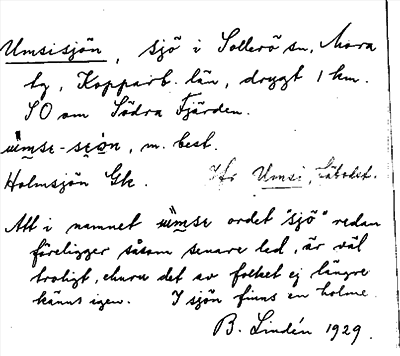 Umsisjön, sjö i Sollerö sn, Mora
tg, Kopparb. län, drygt 1 km.
SO om Södra Fjärden.
ùmse-sjön, m. best.
Holmsjön Gk. Jfr Umsi, fäbodst.
Att i namnet ùmse ordet "sjö" redan
föreligger såsom senare led, är väl
troligt, ehuru det av folket ej längre
känns igen. I sjön finns en holme.
B. Lindén 1929.